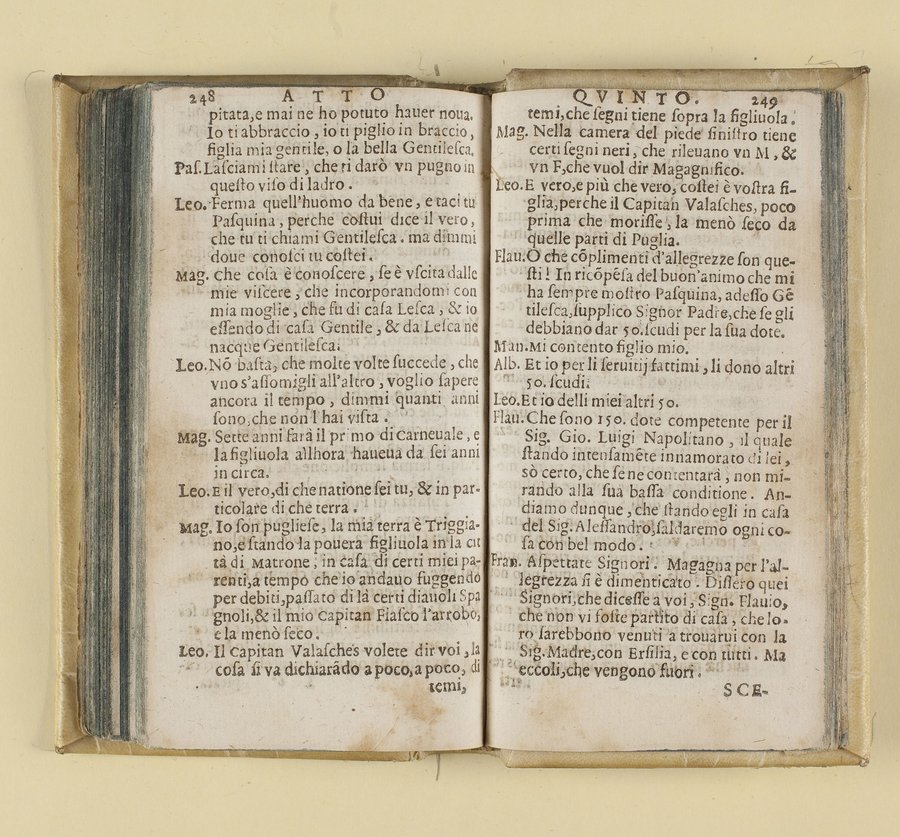 248 ATTO
pitata,e mai ne ho potuto hauer noua.
Io ti abbraccio, io ti piglio in braccio,
figlia mia gentile, o la bella Gentilesca.
Pas. Lasciami stare, che ti darò vn pugno in
questo viso di ladro.
Leo. Ferma quell'huomo da bene, e taci tu
Pasquina, perche costui dice il vero,
che tu ti chiami Gentilesca. ma dimmi
doue conosci tu costei.
Mag. Che cosa è conoscere, se è vscita dalle
mie viscere, che incorporandomi con
mia moglie, che fu di casa Lesca, & io
essendo di casa Gentile, & da Lesca ne
nacque Gentilesca.
Leo. Nõ basta, che molte volte succede, che
vno s'assomigli all'altro, voglio sapere
ancora il tempo, dimmi quanti anni
sono,che non l'hai vista.
Mag. Sette anni farà il primo di Carneuale, e
la figliuola allhora haueua da sei anni
in circa.
Leo. E il vero,di che natione sei tu, & in par-
ticolare di che terra.
Mag. Io son pugliese, la mia terra è Triggia-
no,e stando la pouera figliuola in la cit
tà di Matrone, in casa di certi miei pa-
renti,a tempo che io andauo fuggendo
per debiti,passato di là certi diauoli Spa
gnoli,& il mio Capitan Fiasco l'arrobo,
e la menò seco.
Leo. Il Capitan Valasches volete dir voi, la
cosa si va dichiarãdo a poco, a poco, di
temi,
QVINTO. 249
temi,che segni tiene sopra la figliuola.
Mag. Nella camera del piede sinistro tiene
certi segni neri, che rileuano vn M, &
vn F,che vuol dir Magagnifico.
Leo. E vero,e più che vero, costei è vostra fi-
glia,perche il Capitan Valasches, poco
prima che morisse, la menò seco da
quelle parti di Puglia.
Flau. O che cõplimenti d'allegrezze son que-
sti! In ricõpẽsa del buon'animo che mi
ha sempre mostro Pasquina, adesso Gẽ
tilesca,supplico Signor Padre,che se gli
debbiano dar 50.scudi per la sua dote.
Man. Mi contento figlio mio.
Alb. Et io per li seruitij fattimi, li dono altri
50. scudi.
Leo. Et io delli miei altri 50.
Flau. Che sono 150. dote competente per il
Sig. Gio. Luigi Napolitano, il quale
stando intensamẽte innamorato di lei,
sò certo, che se ne contentarà, non mi-
rando alla sua bassa conditione. An-
diamo dunque, che stando egli in casa
del Sig. Alessandro,saldaremo ogni co-
sa con bel modo.
Fran. Aspettate Signori. Magagna per l'al-
legrezza si è dimenticato. Dissero quei
Signori,che dicesse a voi, Sign. Flauio,
che non vi foste partito di casa, che lo-
ro sarebbono venuti a trouarui con la
Sig. Madre,con Ersilia, e con tutti. Ma
eccoli,che vengono fuori.
SCE-